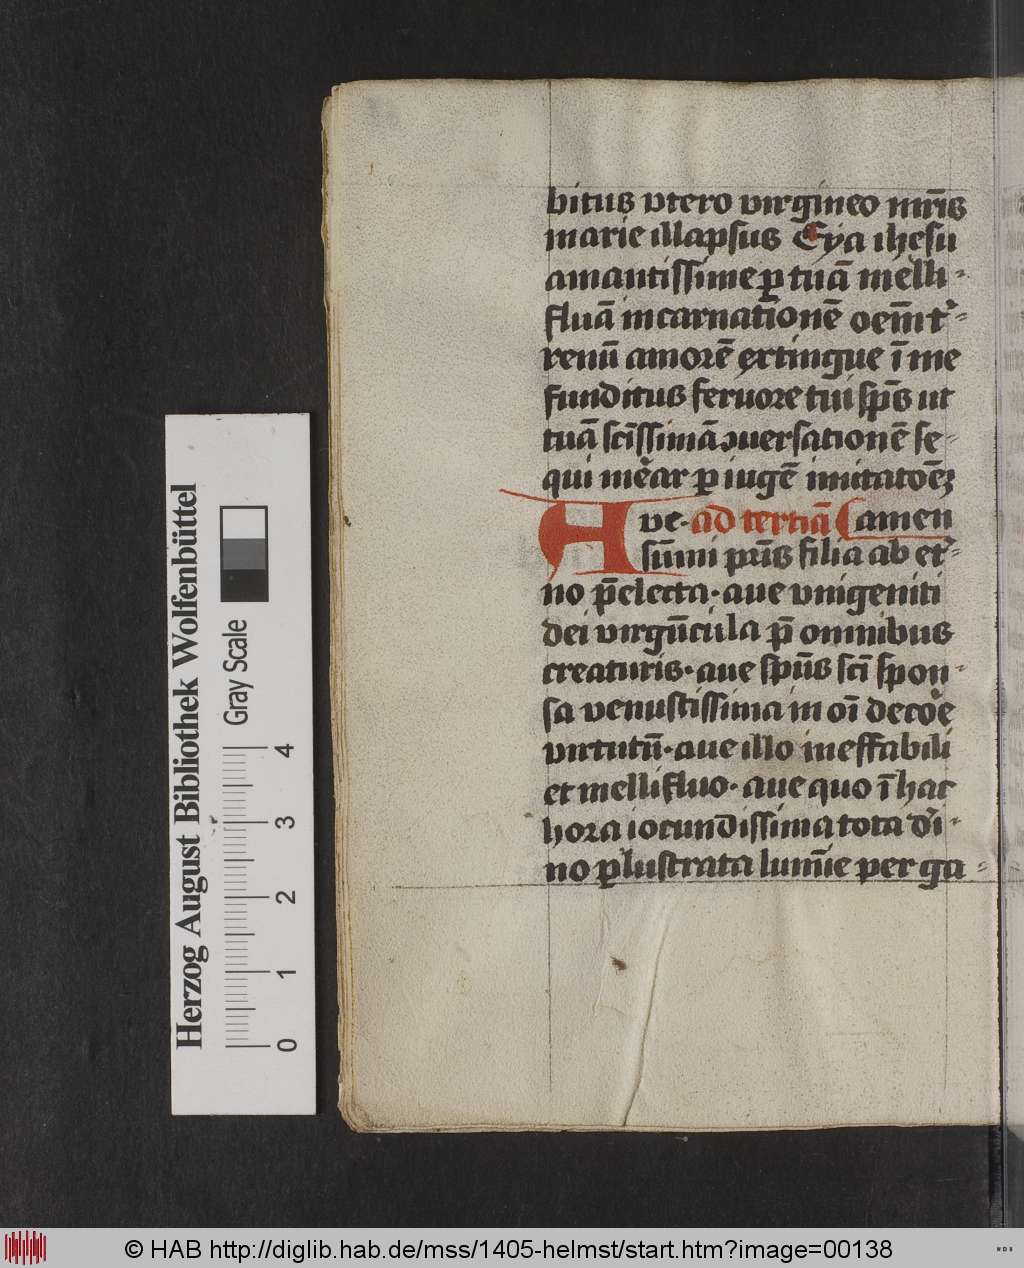 bitus vtero virgineo mr̄is
marie illapsus Eya ihesu
amantissime ꝑ tuā melli-
fluā incarnationē oēm t'-
renū amorē extingue ī me
funditus feruore tui sp̄s ut
tuā scīssimā ꝯuersationē se-
qui mēar ꝑ iugē imitatōēꝫ
Ave. ad tertiā amen
sūmi pr̄is filia ab et'-
no p̄electa. aue vnigeniti
dei virgūcula p̄ omnibus
creaturis. aue sp̄us scī spon-
sa venustissima in oī decōe
virtutū. aue illo ineffabili
et mellifluo. aue quo ī hac
hora iocundissima tota d'i-
no ꝑlustrata lumīe per ga-
Herzog August Bibliothek Wolfenbüttel
Gray Scale
0 1 2 3 4
© HAB http://diglib.hab.de/mss/1405-helmst/start.htm?image=00138